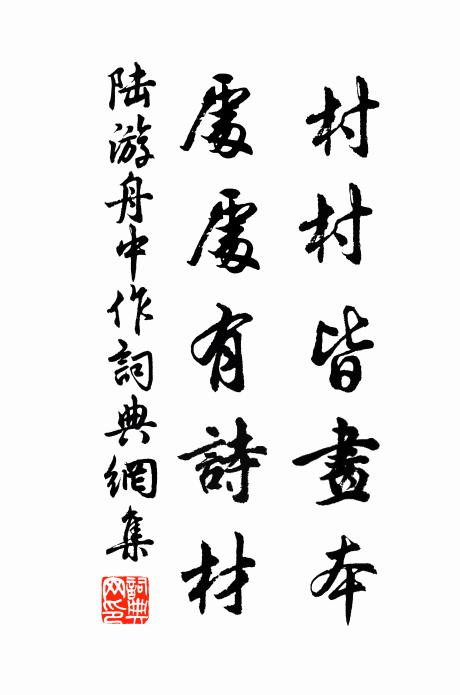 村村皆畫本
處處有詩材
陸游舟中作詞典網集
詞典網印